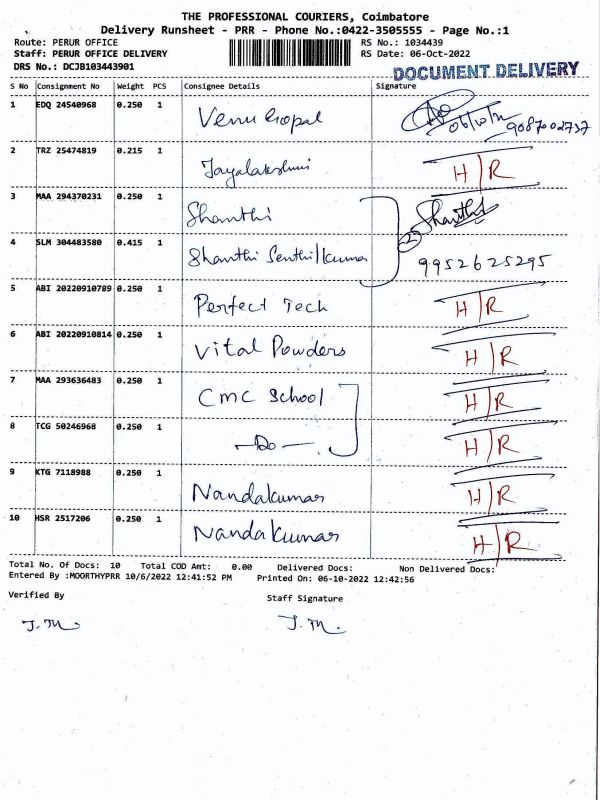 THE PROFESSIONAL COURIERS, Coimbatore
Delivery Runsheet - PRR - Phone No.:0422-3505555 - Page No.:1
Route: PERUR OFFICE RS No.: 1034439
Staff: PERUR OFFICE DELIVERY RS Date: 06-Oct-2022
DRS No.: DCJB103443901 DOCUMENT DELIVERY
S No Consignment No Weight PCS Consignee Details Signature
1 EDQ 24540968 0.250 1 Venu Gopal 06/10/22 9087002737
2 TRZ 25474819 0.215 1 Jayalakshmi H/R
3 MAA 294370231 0.250 1 Shanthi Shanthi
-2-
4 SLM 304483580 0.415 1 Shanthi Senthilkumar 9952625295
5 ABI 20220910789 0.250 1 Perfect Tech H/R
6 ABI 20220910814 0.250 1 Vital Powders H/R
7 MAA 293636483 0.250 1 CMC School H/R
8 TCG 50246968 0.250 1 -Do- H/R
9 KTG 7118988 0.250 1 Nandakumar H/R
10 HSR 2517206 0.250 1 Nandakumar H/R
Total No. Of Docs: 10 Total COD Amt: 0.00 Delivered Docs: Non Delivered Docs:
Entered By :MOORTHYPRR 10/6/2022 12:41:52 PM Printed On: 06-10-2022 12:42:56
Verified By Staff Signature
J.M. J.M.